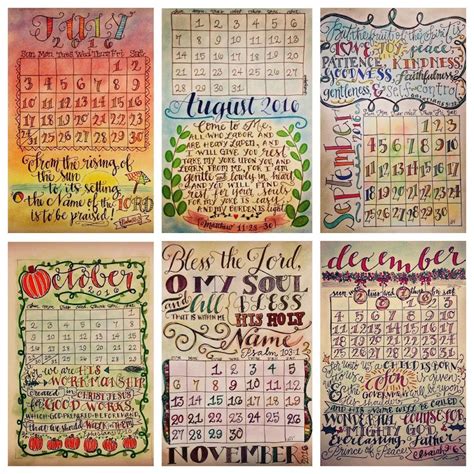 JULY
2016
Sun Mon Tues Wed Thurs Fri Sat
1 2
3 4 5 6 7 8 9
10 11 12 13 14 15 16
17 18 19 20 21 22 23
24 31 25 26 27 28 29 30
From the rising of
the Sun
to its setting,
the Name of the LORD
is to be praised!
1 2 3 4 5 6
7 8 9 10 11 12 13
14 15 16 17 18 19 20
21 22 23 24 25 26 27
28 29 30 31
August 2016
Come to Me,
all who labor and
are heavy laden, and
I will give you rest.
Take my yoke upon you, and
learn from me, for I am
gentle and lowly in heart
and you will find
rest for your souls
my yoke is easy
and my burden is light.
Matthew 11:28-30
But the fruit of the Spirit is
LOVE, JOY, peace,
PATIENCE, KINDNESS,
GOODNESS, Faithfulness,
gentleness & Self-Control
September 2016
1 2 3
4 5 6 7 8 9 10
11 12 13 14 15 16 17
18 19 20 21 22 23 24
25 26 27 28 29 30
October
2016
1
2 3 4 5 6 7 8
9 10 11 12 13 14 15
16 17 18 19 20 21 22
23 30 24 31 25 26 27 28 29
For we are HIS
WORKMANSHIP
created in CHRIST JESUS
for GOOD WORKS
which God prepared beforehand,
that we should walk in them.
Bless the Lord,
O MY SOUL
and all
THAT IS WITHIN ME
BLESS
HIS HOLY
Name
Psalm 103:1
1 2 3 4 5
6 7 8 9 10 11 12
13 14 15 16 17 18 19
20 21 22 23 24 25 26
27 28 29 30
NOVEMBER 2016
december
sun mon tues wed thurs fri sat
1 2 3
4 5 6 7 8 9 10
11 12 13 14 15 16 17
18 19 20 21 22 23 24
25 26 27 28 29 30 31
For unto us a CHILD is BORN
to us a SON is given
and His name will be called
WONDERFUL COUNSELOR
MIGHTY GOD
Everlasting Father
Prince of Peace
Isaiah 9:6